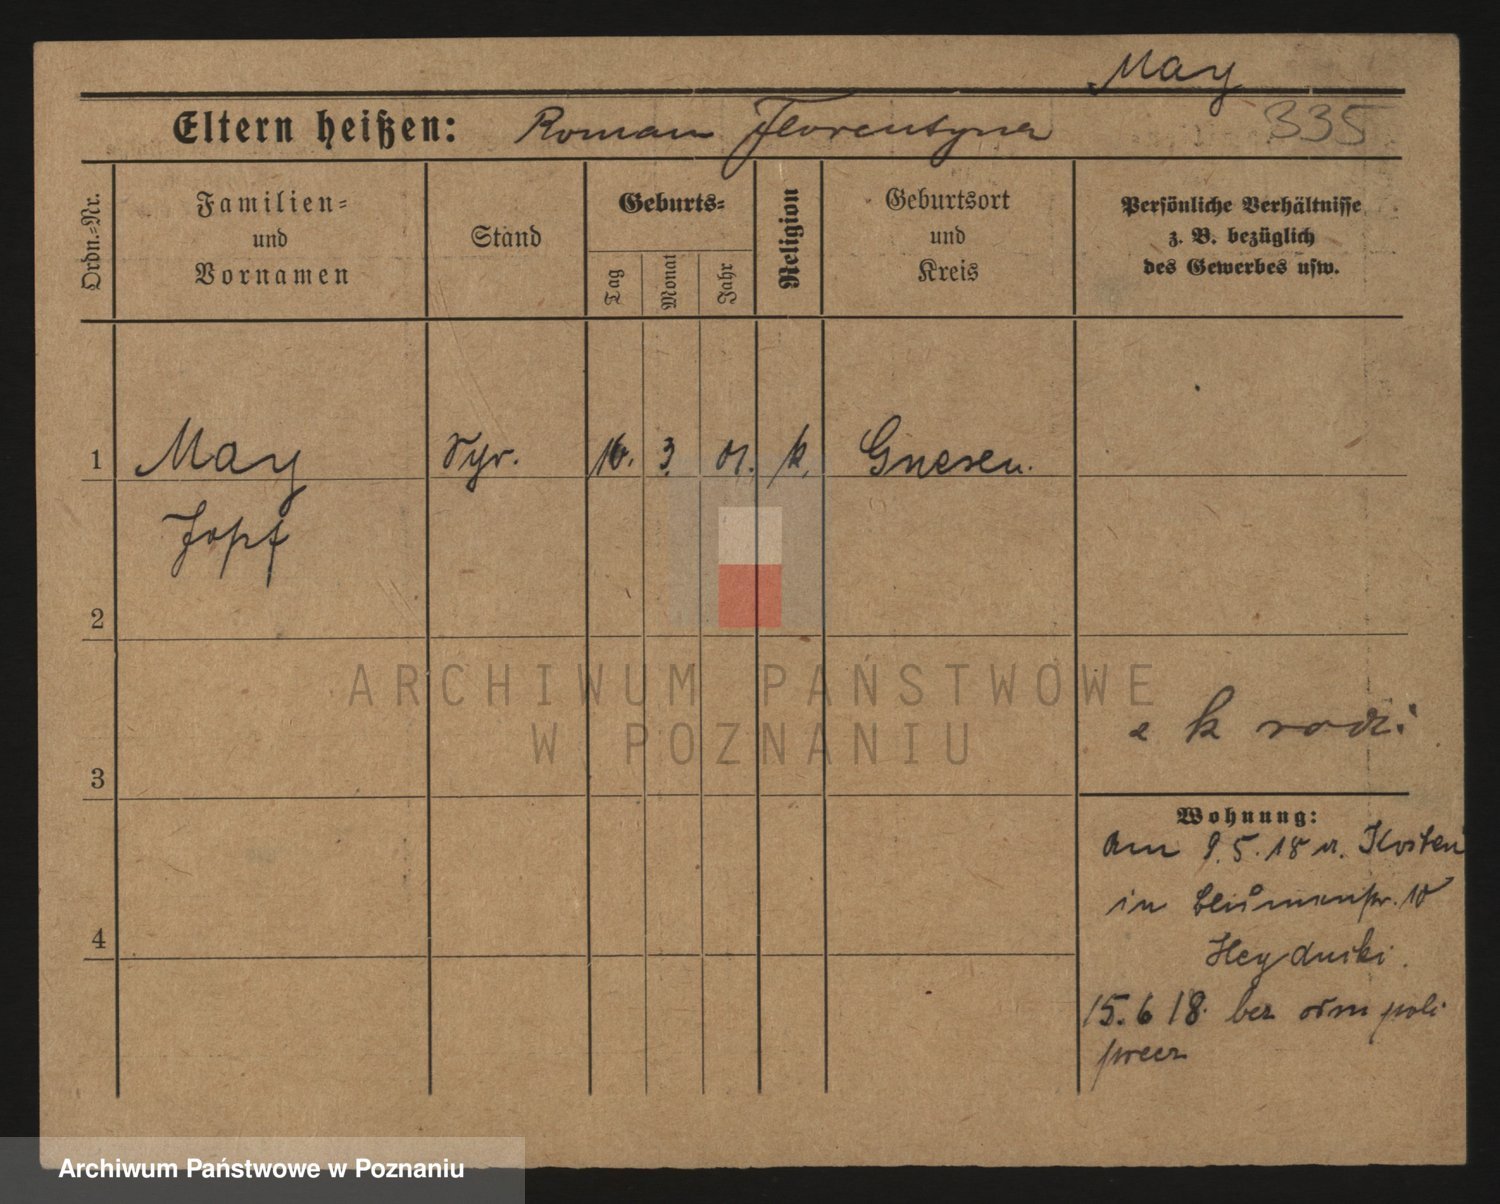 May
Eltern heißen: Roman Florentyna 335
Ordn.-Nr.
Familien-
und
Vornamen
Stand
Geburts-
Tag
Monat
Jahr
Religion
Geburtsort
und
Kreis
Persönliche Verhältnisse
z. B. bezüglich
des Gewerbes usw.
1 May 16. 3 01. k. Gnesen.
2
3
4
k rodz.
Wohnung:
Am 9.5.18 v. Kosten
in Blumenstr. 10
15.6 18.
ARCHIWUM PAŃSTWOWE
W POZNANIU
Archiwum Państwowe w Poznaniu